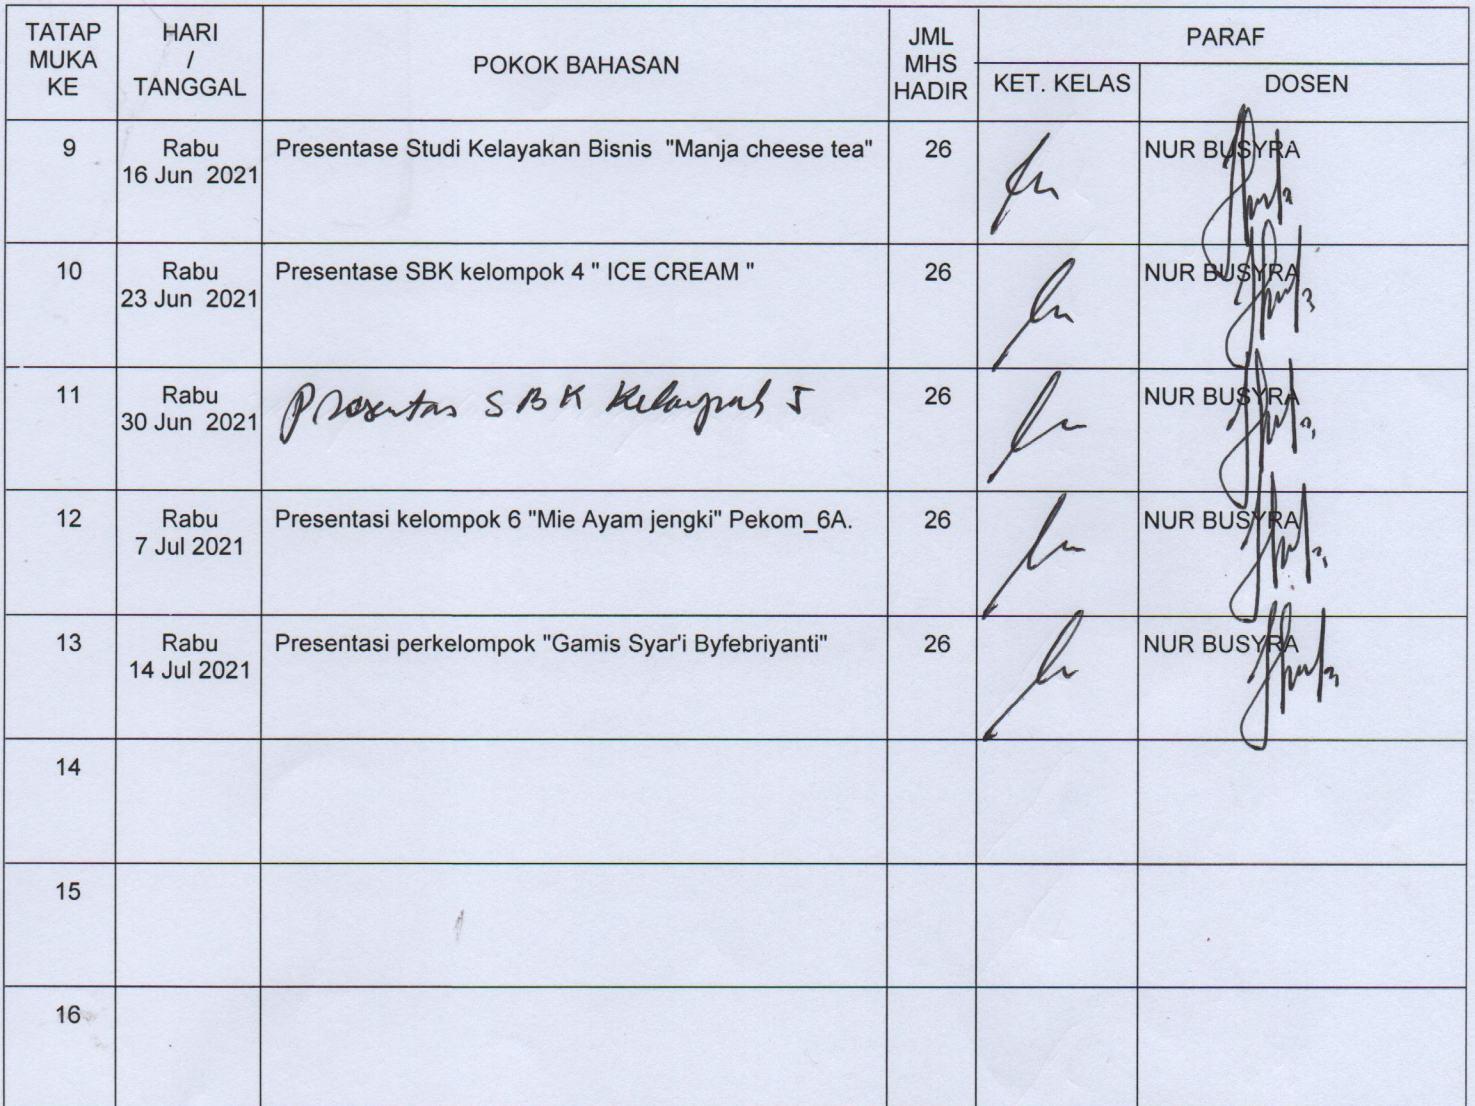 TATAP MUKA KE
HARI / TANGGAL
POKOK BAHASAN
JML MHS HADIR
PARAF
KET. KELAS
DOSEN
9
Rabu
16 Jun 2021
Presentase Studi Kelayakan Bisnis "Manja cheese tea"
26
NUR BUSYRA
10
Rabu
23 Jun 2021
Presentase SBK kelompok 4 " ICE CREAM "
26
NUR BUSYRA
11
Rabu
30 Jun 2021
SBK Kelompok 5
26
NUR BUSYRA
12
Rabu
7 Jul 2021
Presentasi kelompok 6 "Mie Ayam jengki" Pekom_6A.
26
NUR BUSYRA
13
Rabu
14 Jul 2021
Presentasi perkelompok "Gamis Syar'i Byfebriyanti"
26
NUR BUSYRA
14
15
16